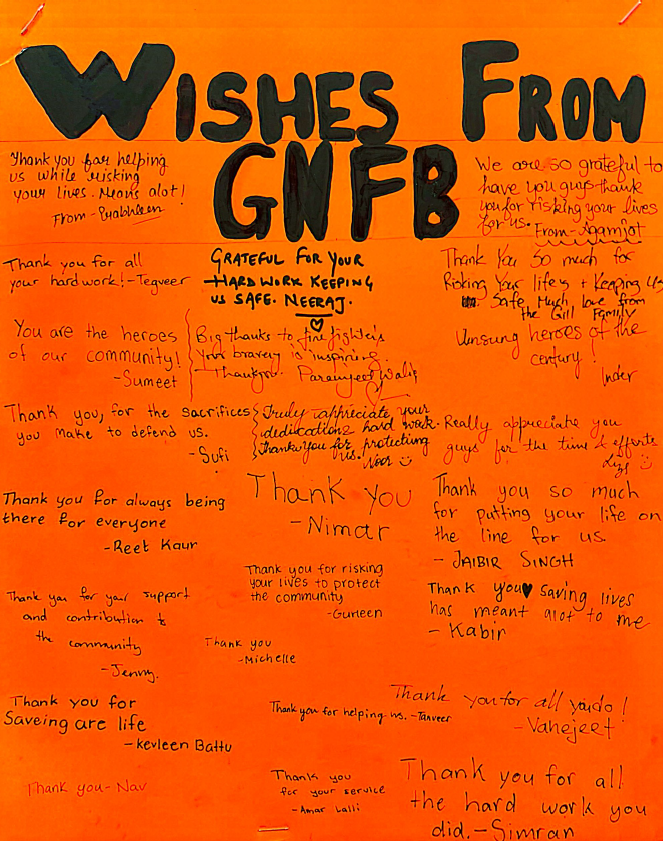 WISHES FROM
GNFB
Thank you for helping
us while risking
your lives. Means alot!
From - Prabhleen
We are so grateful to
have you guys thank
you for risking your lives
for us. From - Agamjot
Thank you for all
your hard work! - Tegveer
GRATEFUL FOR YOUR
HARD WORK KEEPING
US SAFE. NEERAJ.
Thank You so much for
Risking Your lifes + Keeping Us
Safe. Much love from
the Gill Family
You are the heroes
of our community!
- Sumeet
Big thanks to fire fighters
Your bravery is inspiring.
- Thankyou. Paramjeet Walia
Unsung heroes of the
century!
Inder
Thank you, for the sacrifices
you make to defend us.
- Sufi
Truly appreciate your
dedications hard work.
Thank you for protecting
us! Noor
Really appreciate you
guys for the time & efforts
Thank you for always being
there for everyone
- Reet Kaur
Thank you
- Nimar
Thank you so much
for putting your life on
the line for us.
- JAIBIR SINGH
Thank you for your support
and contribution to
the community
- Jenny.
Thank you for risking
your lives to protect
the community
- Gurneen
Thank you
- Michelle
Thank you♥ saving lives
has meant alot to me
- Kabir
Thank you for
Saveing are life
- Kevleen Battu
Thank you for helping us. - Tanveer
Thank you for all you do!
- Vahejeet
Thank you - Nav
Thank you
for your service
- Amar Lalli
Thank you for all
the hard work you
did. - Simran